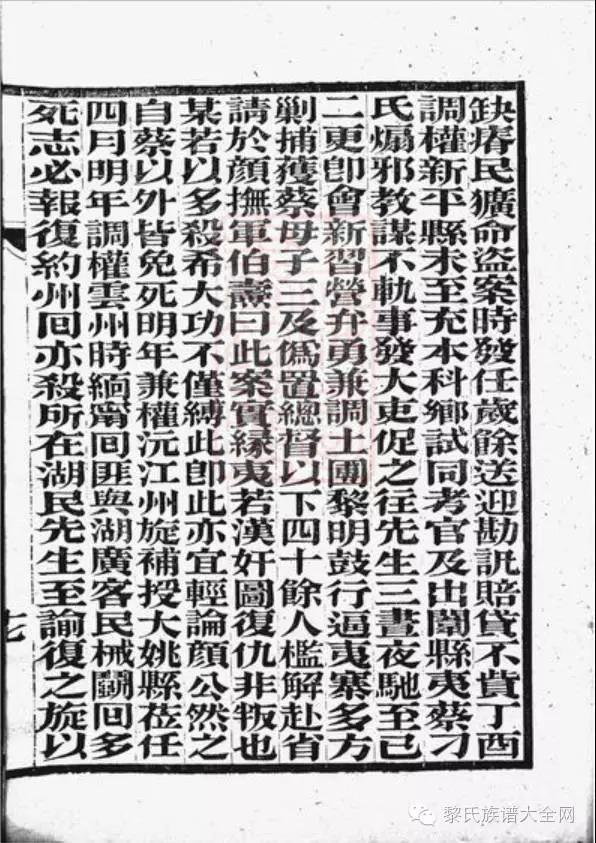 缺瘠民獷命盜案時發任歲餘送迎勘訊賠貸不貲丁酉
調權新平縣未至充本科鄉試同考官及出闈縣夷蔡刁
氏煽邪教謀不軌事發大吏促之往先生三晝夜馳至已
二更卽會新習營弁勇兼調土團黎明鼓行逼夷寨多方
剿捕獲蔡母子三及僞置總督以下四十餘人檻解赴省
請於顏撫軍伯燾曰此案實緣夷若漢奸圖復仇非叛也
某若以多殺希大功不僅縛此卽此亦宜輕論顏公然之
自蔡以外皆免死明年兼權沅江州旋補授大姚縣莅任
四月明年調權雲州時緬甯回匪與湖廣客民械鬭回多
死志必報復約州回亦殺所在湖民先生至諭復之旋以
七
黎氏族谱大全网